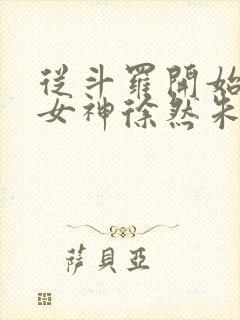 從斗羅開始
女神徐然朱
薩貝亞